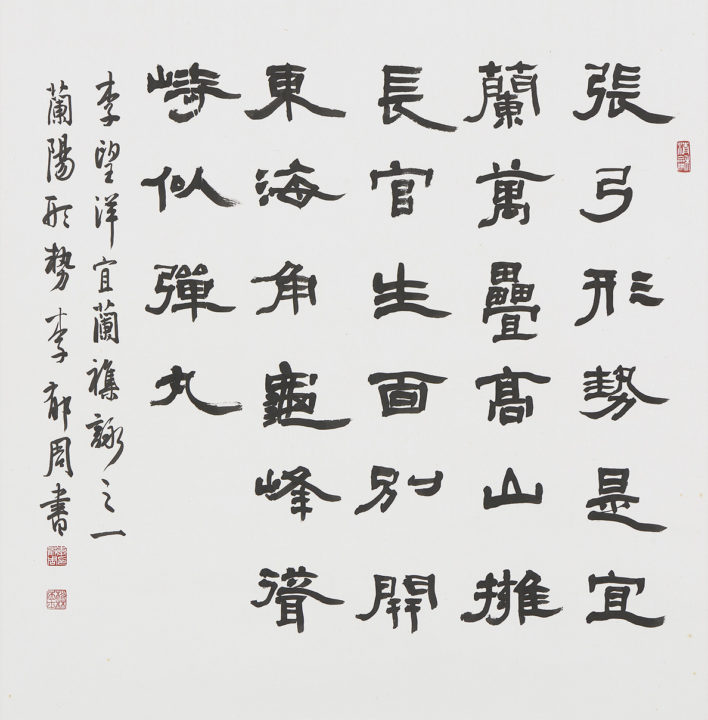 張弓形勢是宜
蘭萬疊高山擁
長官生面別開
東海角龜峰聳
峙似彈丸
李望洋宜蘭襍詠之一
蘭陽形勢李郁周書